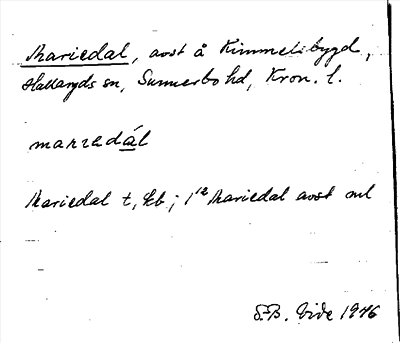 Mariedal, avst å Kimmelsbygd,
Hallaryds sn, Sunnerbo hd, Kron. l.
marıedál
Mariedal t, kb; 1/2 Mariedal avst ml
S.-B. Vide 1946